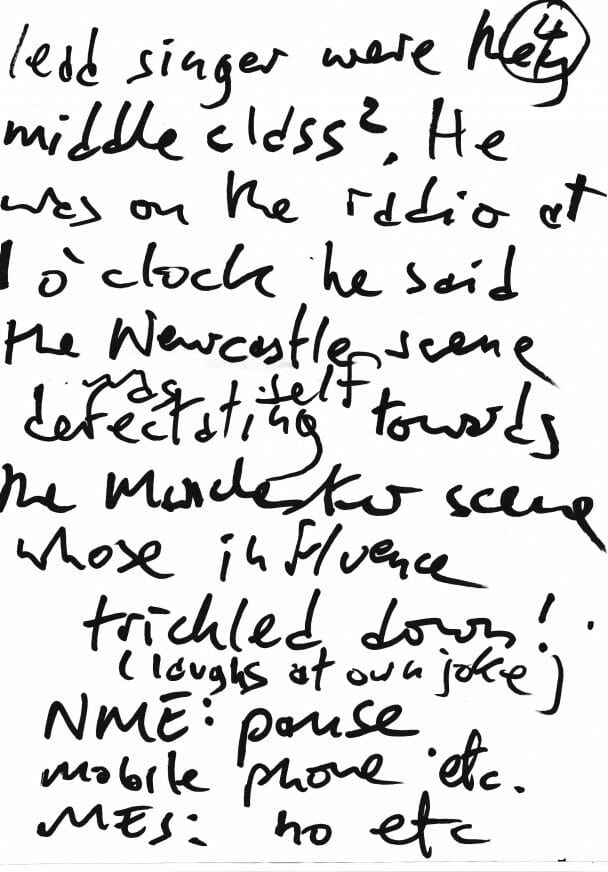 4
lead singer were they
middle class?. He
was on the radio at
1 o'clock he said
the Newcastle scene
was self
defectating towards
the Manchester scene
whose influence
trickled down!
(laughs at own joke)
NME: pause
mobile phone etc.
MES: no etc